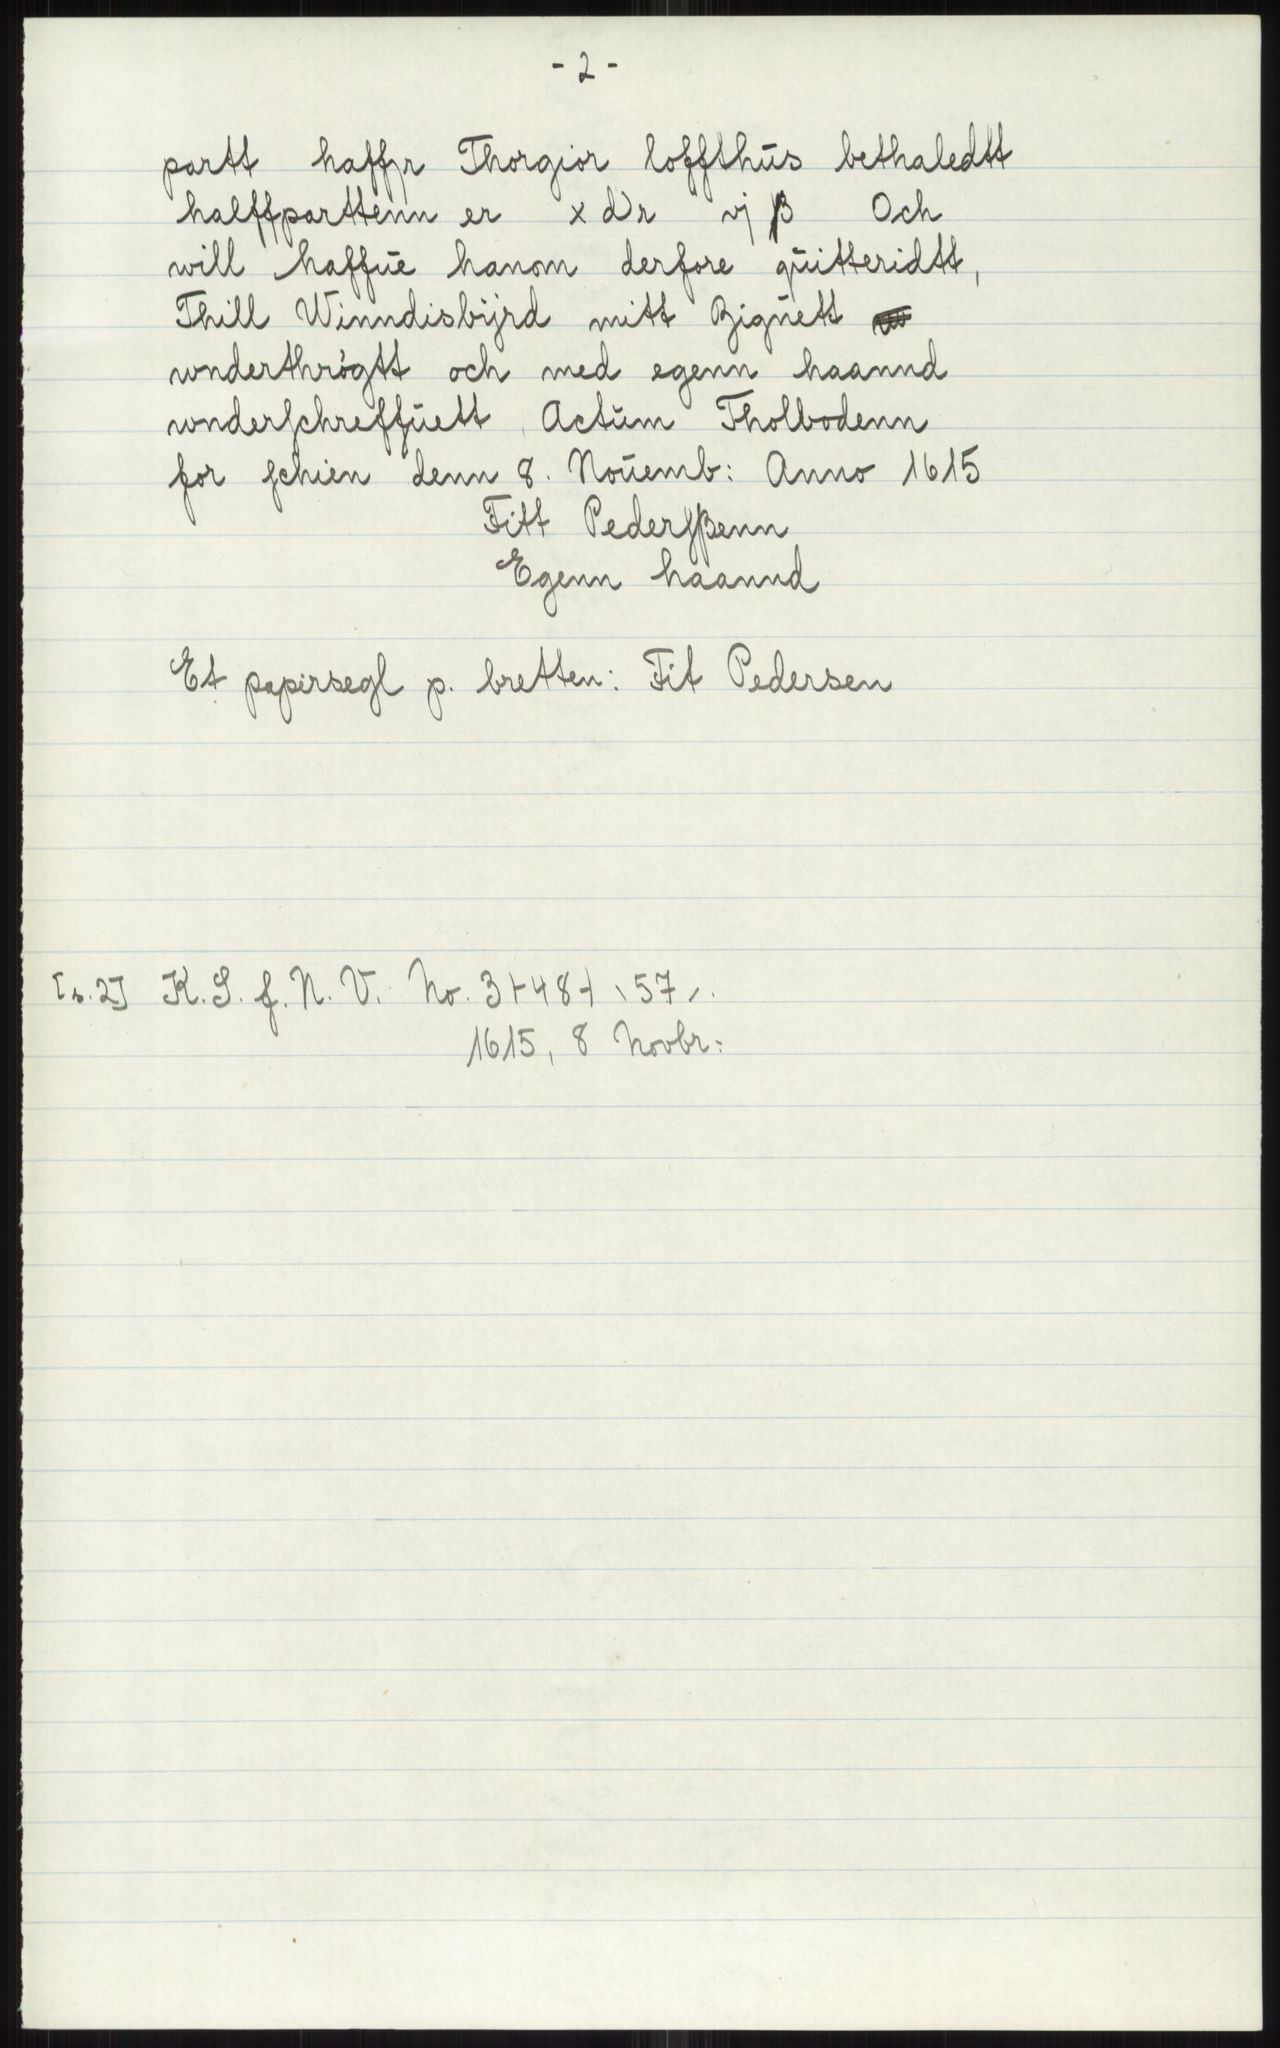 - 2 -
partt haffr Thorgior loffthūs bethaledtt
halffparttenn er x dlr vj β Och
will haffūe hanom derfore qūitteridtt,
Thill Winndisbÿrd mitt Zignett
wnderthrögtt och med egenn haannd
wnderschreffūett, Actūm Tholbodenn
for schien denn 8. Noūemb: Anno 1615
Fitt Pedersβenn
Egenn haannd
Et papirsegl p. bretten: Fit Pedersen
[s. 2] K. S. f. N. V. No. 3+48+ 57
1615, 8 Novbr: